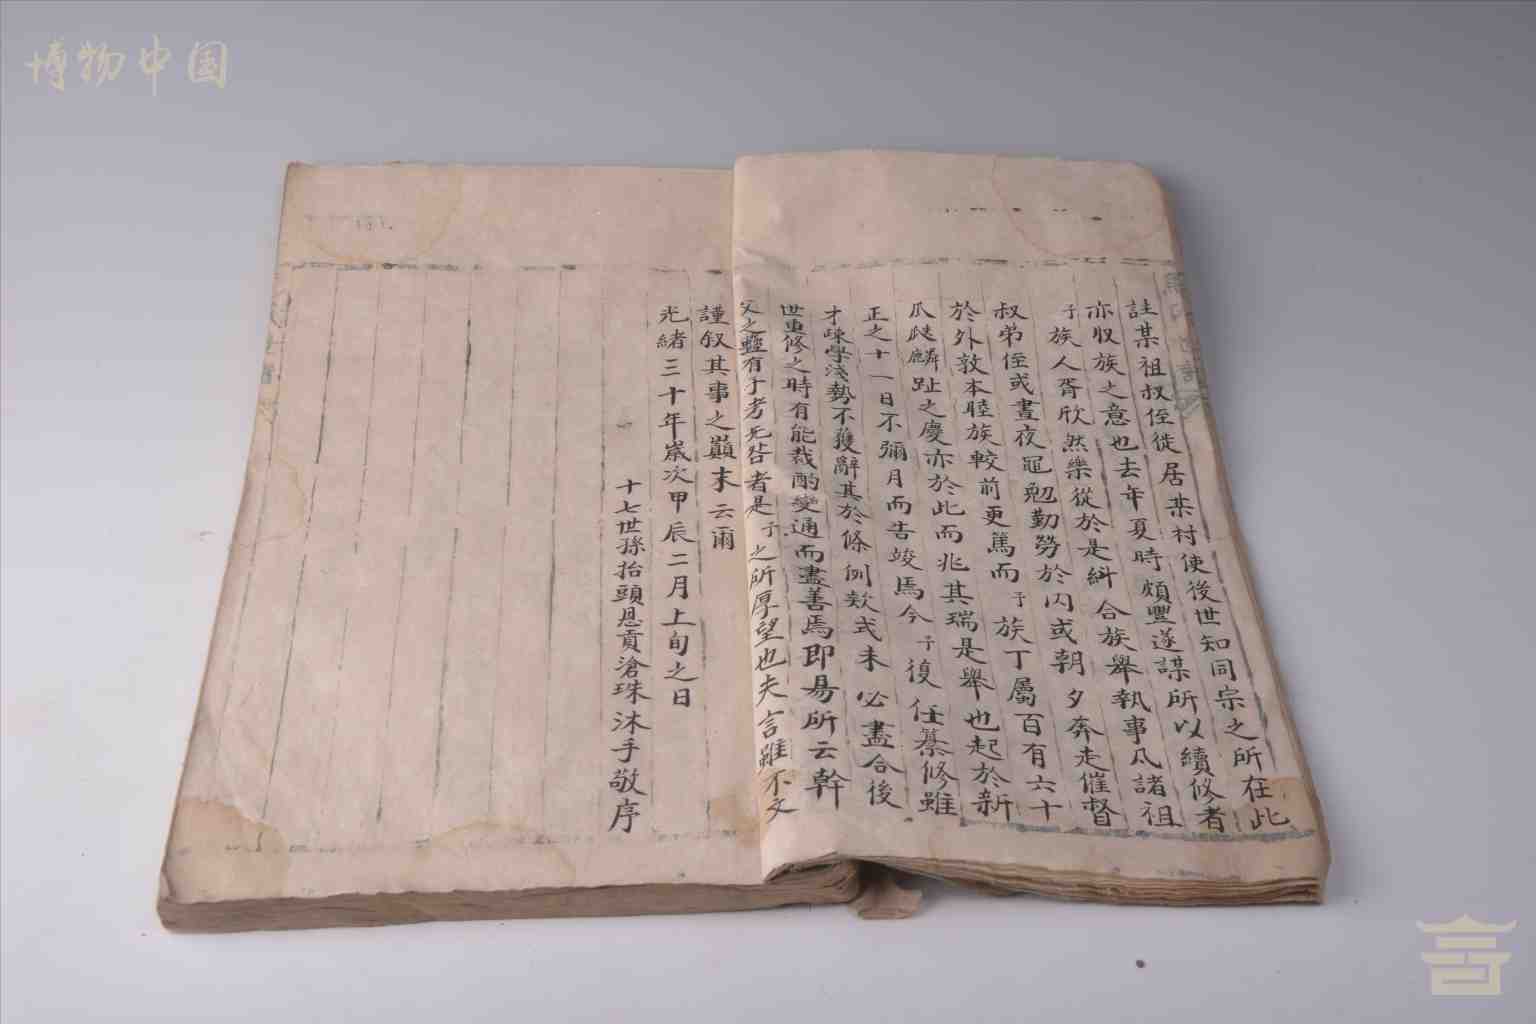 博物中国
註某祖叔侄徙居某村使後世知同宗之所在此
亦収族之意也去年夏時頗豐遂謀所以續修者
予族人胥欣然樂從於是糾合族舉執事瓜諸祖
叔弟侄或晝夜黽勉勤勞於内或朝夕奔走催督
於外敦本睦族較前更篤而予族丁屬百有六十
瓜瓞麟趾之慶亦於此而兆其瑞是舉也起於新
正之十一日不彌月而告竣焉今予復任纂修雖
才疎學淺勢不獲辭其於條例欵式未必盡合後
世重修之時有能裁酌變通而盡善焉即易所云幹
父之蠱有子考无咎者是予之所厚望也夫言雖不文
謹叙其事之巔末云爾
光緒三十年嵗次甲辰二月上旬之日
十七世孫抬頭恩貢滄珠沐手敬序